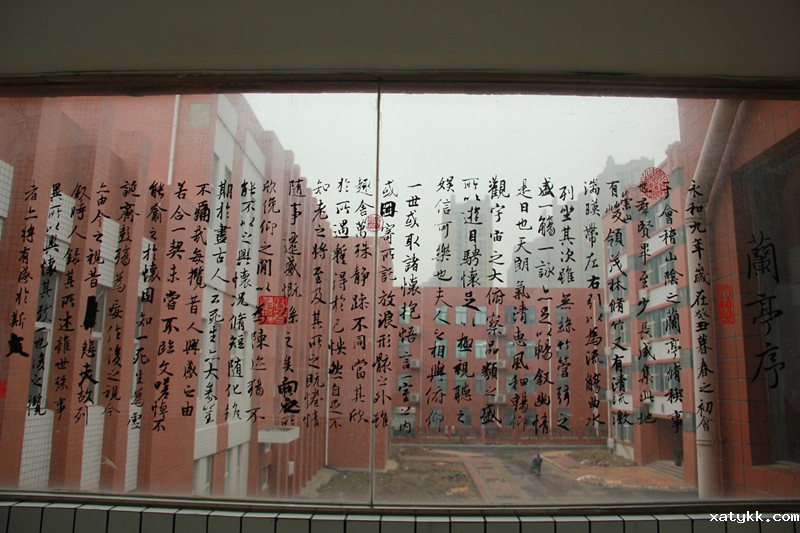 蘭亭序
永和九年歲在癸丑暮春之初會
于會稽山陰之蘭亭脩稧事
也羣賢畢至少長咸集此地
有崇山峻領茂林脩竹又有清流激
湍暎帶左右引以為流觴曲水
列坐其次雖無絲竹管弦之
盛一觴一詠亦足以暢敘幽情
是日也天朗氣清惠風和暢仰
觀宇宙之大俯察品類之盛
所以遊目騁懷足以極視聽之
娛信可樂也夫人之相與俯仰
一世或取諸懷抱悟言一室之內
或因寄所託放浪形骸之外雖
趣舍萬殊靜躁不同當其欣
於所遇暫得於己快然自足不
知老之將至及其所之既惓情
隨事遷感慨係之矣向之所
欣俛仰之閒以為陳迹猶不
能不以之興懷況脩短隨化終
期於盡古人云死生亦大矣豈
不痛哉每攬昔人興感之由
若合一契未嘗不臨文嗟悼不
能喻之於懷固知一死生為虛
誕齊彭殤為妄作後之視今
亦由今之視昔悲夫故列
敘時人錄其所述雖世殊事
異所以興懷其致一也後之攬
者亦將有感於斯文
xatykk.com